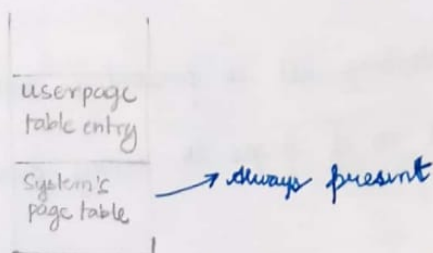 userpage
table entry
System's
page table
always present